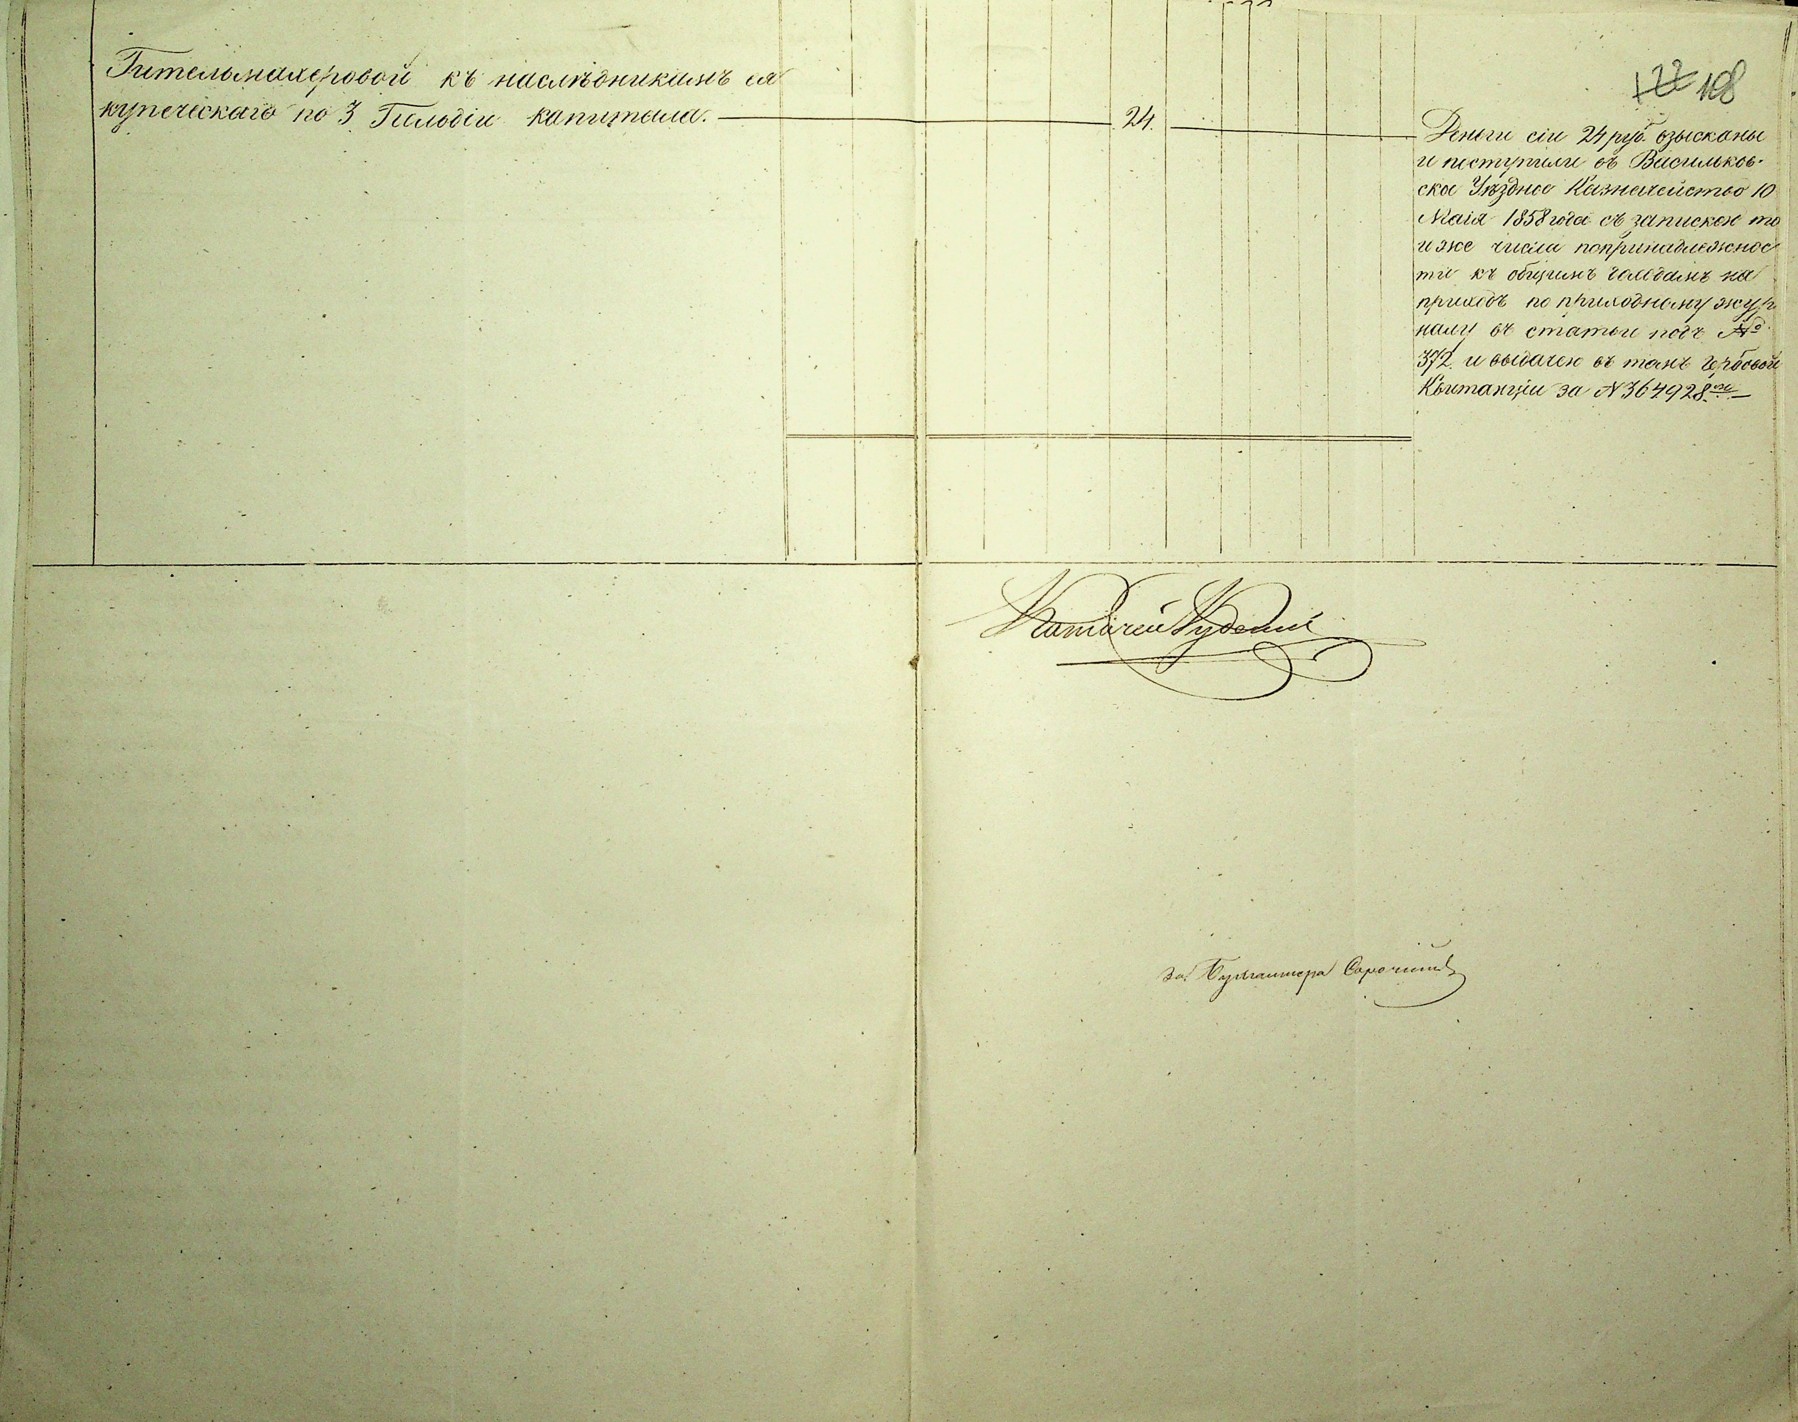 Гительмахеровой къ наслѣдникамъ ея
купеческаго по 3 Гильдіи капитала.
24.
122 108
Деньги сіи 24 руб. взысканы
и поступили въ Васильков-
ское Уѣздное Казначейство 10
Маія 1858 года съ запискою то
и же числа попринадлежнос
ти къ общимъ
приходъ по приходному жур
налу въ статьи подъ №
372. и выдачею въ томъ Гербовой
Квитанціи за № 364928.
За Бухгалтера